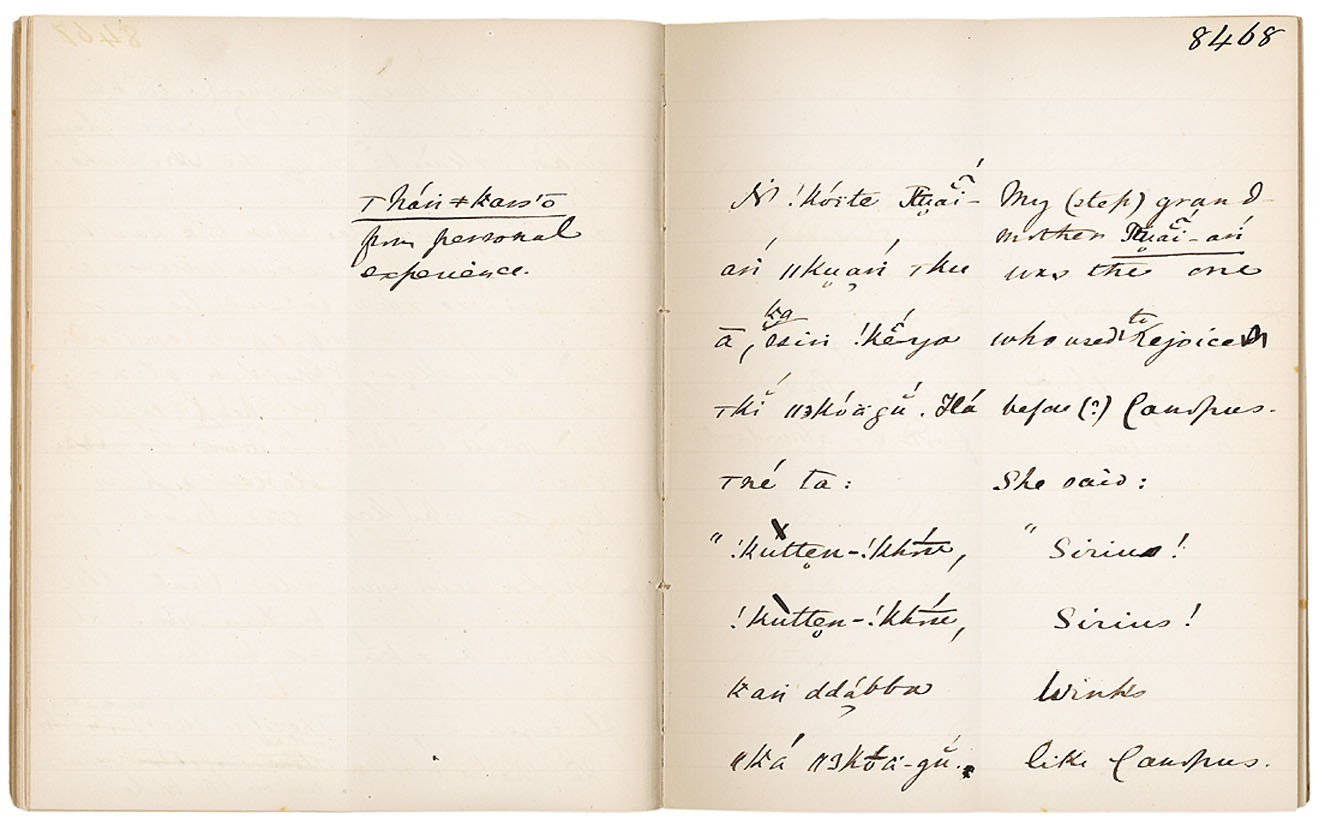 8468
͟Thán ǂkass'ō
from personal
experience.
Ṅ !kóïte Ttu̯aí-
aṅ ǁku̯aṅ ꞇku
ā, ka ssiṅ !kéya
ꞇkĭ ǁɜkóägŭ. Há
ꞇné ta:
" !kuttẹn-!khwe,
!kuttẹn-!khwe,
kaṅ ddábba
ǁká ǁɜkóä-gŭ.
My (step) grand-
mother Ttu̯aí-aṅ
was the one
who used to Rejoice
before (?) Canopus.
She said:
" Sirius!
Sirius!
Winks
like Canopus.